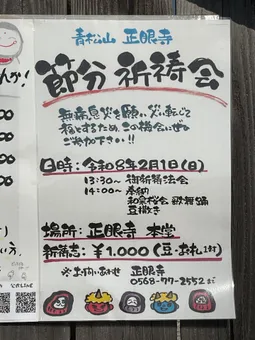 青松山 正眼寺
節分祈祷会
無病息災を願い、災い転じて
福とするため、この機会にぜひ
ご参加下さい!!
日時:令和8年2月1日(日)
13:30~ 御祈祷法会
14:00~ 奉納
和泉桜会 歌舞踊
豆撒き
場所:正眼寺 本堂
祈祷志:¥1,000(豆・お札います)
※お問い合わせ 正眼寺
0568-77-2552まで